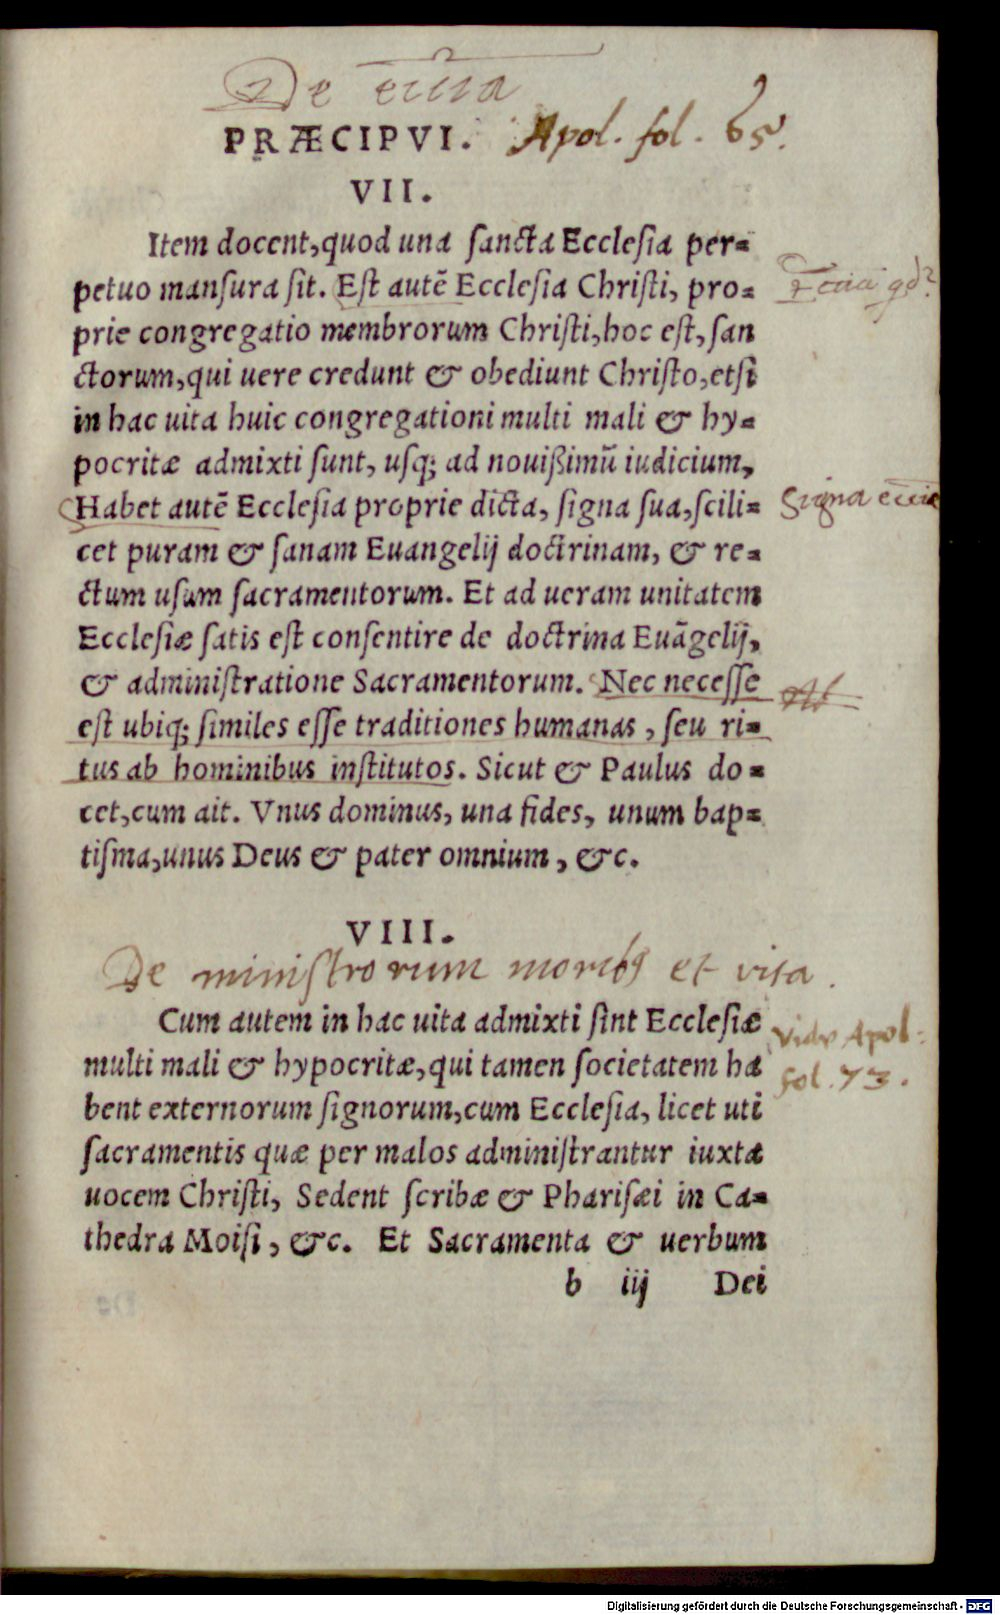 De ecclīa
PRÆCIPVI. Apol. fol. 65.
VII.
Item docent, quod una sancta Ecclesia per=
petuo mansura sit. Est autē Ecclesia Christi, pro=
prie congregatio membrorum Christi, hoc est, san
ctorum, qui uere credunt & obediunt Christo, etsi
in hac uita huic congregationi multi mali & hy=
pocritæ admixti sunt, usq; ad nouißimū iudicium,
Habet autē Ecclesia proprie dicta, signa sua, scili=
Signa
cet puram & sanam Euangelij doctrinam, & re=
ctum usum sacramentorum. Et ad ueram unitatem
Ecclesiæ satis est consentire de doctrina Euāgelij,
& administratione Sacramentorum. Nec necesse
est ubiq; similes esse traditiones humanas, seu ri=
tus ab hominibus institutos. Sicut & Paulus do=
cet, cum ait. Vnus dominus, una fides, unum bap=
tisma, unus Deus & pater omnium, &c.
VIII.
De ministrorum morib9 et vita.
Cum autem in hac uita admixti sint Ecclesiæ
multi mali & hypocritæ, qui tamen societatem ha
bent externorum signorum, cum Ecclesia, licet uti
sacramentis quæ per malos administrantur iuxta
uocem Christi, Sedent scribæ & Pharisæi in Ca=
thedra Moisi, &c. Et Sacramenta & uerbum
Vide Apol.
fol. 73.
b iij Dei
Digitalisierung gefördert durch die Deutsche Forschungsgemeinschaft - DFG